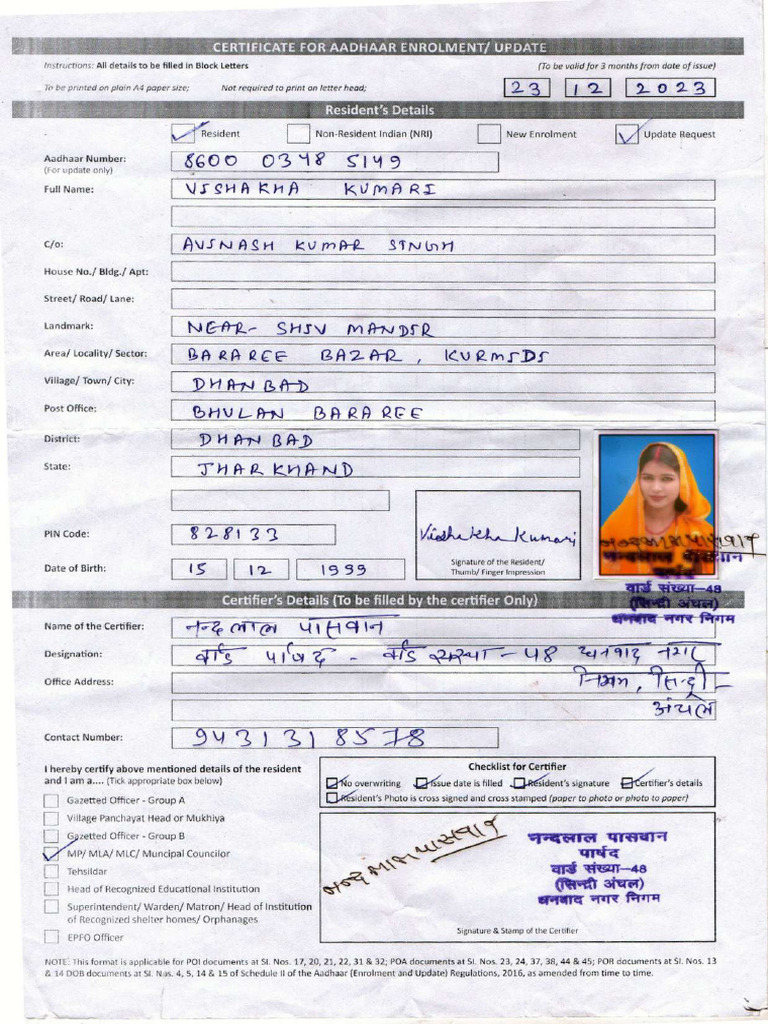 CERTIFICATE FOR AADHAAR ENROLMENT/ UPDATE
Instructions: All details to be filled in Block Letters (To be valid for 3 months from date of issue)
To be printed on plain A4 paper size; Not required to print on letter head; 23 12 2023
Resident's Details
Resident Non-Resident Indian (NRI) New Enrolment Update Request
Aadhaar Number: 8600 0348 5149
(For update only)
Full Name: VISHAKHA KUMARI
C/o: AVINASH KUMAR SINGH
House No./ Bldg./ Apt:
Street/ Road/ Lane:
Landmark: NEAR- SHIV MANDIR
Area/ Locality/ Sector: BARAREE BAZAR, KURMIDI
Village/ Town/ City: DHANBAD
Post Office: BHULAN BARAREE
District: DHANBAD
State: JHARKHAND
PIN Code: 828133
Vishakha Kumari
Signature of the Resident/
Thumb/ Finger Impression
Date of Birth: 15 12 1999
नन्दलाल पासवान
पार्षद
वार्ड संख्या-48
(सिन्द्री अंचल)
धनबाद नगर निगम
Certifier's Details (To be filled by the certifier Only)
Name of the Certifier: नन्दलाल पासवान
Designation: वार्ड पार्षद - वार्ड संख्या - 48 धनबाद नगर
Office Address: निगम, सिन्द्री
अंचल
Contact Number: 9431318578
I hereby certify above mentioned details of the resident
and I am a.... (Tick appropriate box below)
Gazetted Officer - Group A
Village Panchayat Head or Mukhiya
Gazetted Officer - Group B
MP/ MLA/ MLC/ Muncipal Councilor
Tehsildar
Head of Recognized Educational Institution
Superintendent/ Warden/ Matron/ Head of Institution
of Recognized shelter homes/ Orphanages
EPFO Officer
Checklist for Certifier
No overwriting Issue date is filled Resident's signature Certifier's details
Resident's Photo is cross signed and cross stamped (paper to photo or photo to paper)
नन्दलाल पासवान
नन्दलाल पासवान
पार्षद
वार्ड संख्या-48
(सिन्द्री अंचल)
धनबाद नगर निगम
Signature & Stamp of the Certifier
NOTE: This format is applicable for POI documents at Sl. Nos. 17, 20, 21, 22, 31 & 32; POA documents at Sl. Nos. 23, 24, 37, 38, 44 & 45; POR documents at Sl. Nos. 13
& 14 DOB documents at Sl. Nos. 4, 5, 14 & 15 of Schedule II of the Aadhaar (Enrolment and Update) Regulations, 2016, as amended from time to time.